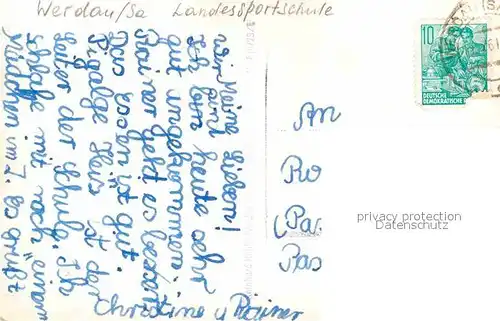 Werdau/Sa Landessportschule
Meine Lieben!
Wir sind
Ich bin heute sehr
gut angekommen.
Rainer geht es besser
Das Essen ist gut
Heis ist der
Leiter der Schule. Ich
schlafe mit noch einem
Mädchen im Z. Es grüßt
Christine u Rainer
An
Pa
Pas
10
DEUTSCHE
DEMOKRATISCHE
privacy protection
Datenschutz